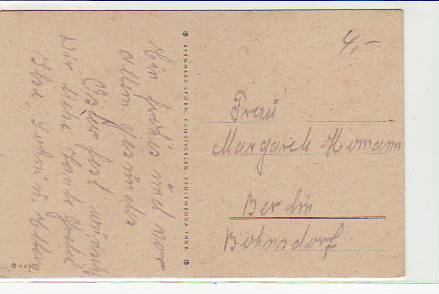 Ein frohes und vor
allem gesundes
Osterfest wünscht
Dir liebe Tante Gretel
Ilse,
BERNHARD SPÖRN, KUNSTVERLAG, ZEULENRODA THÜR.
4,-
Frau
Margarete Homann
Berlin
Bohnsdorf